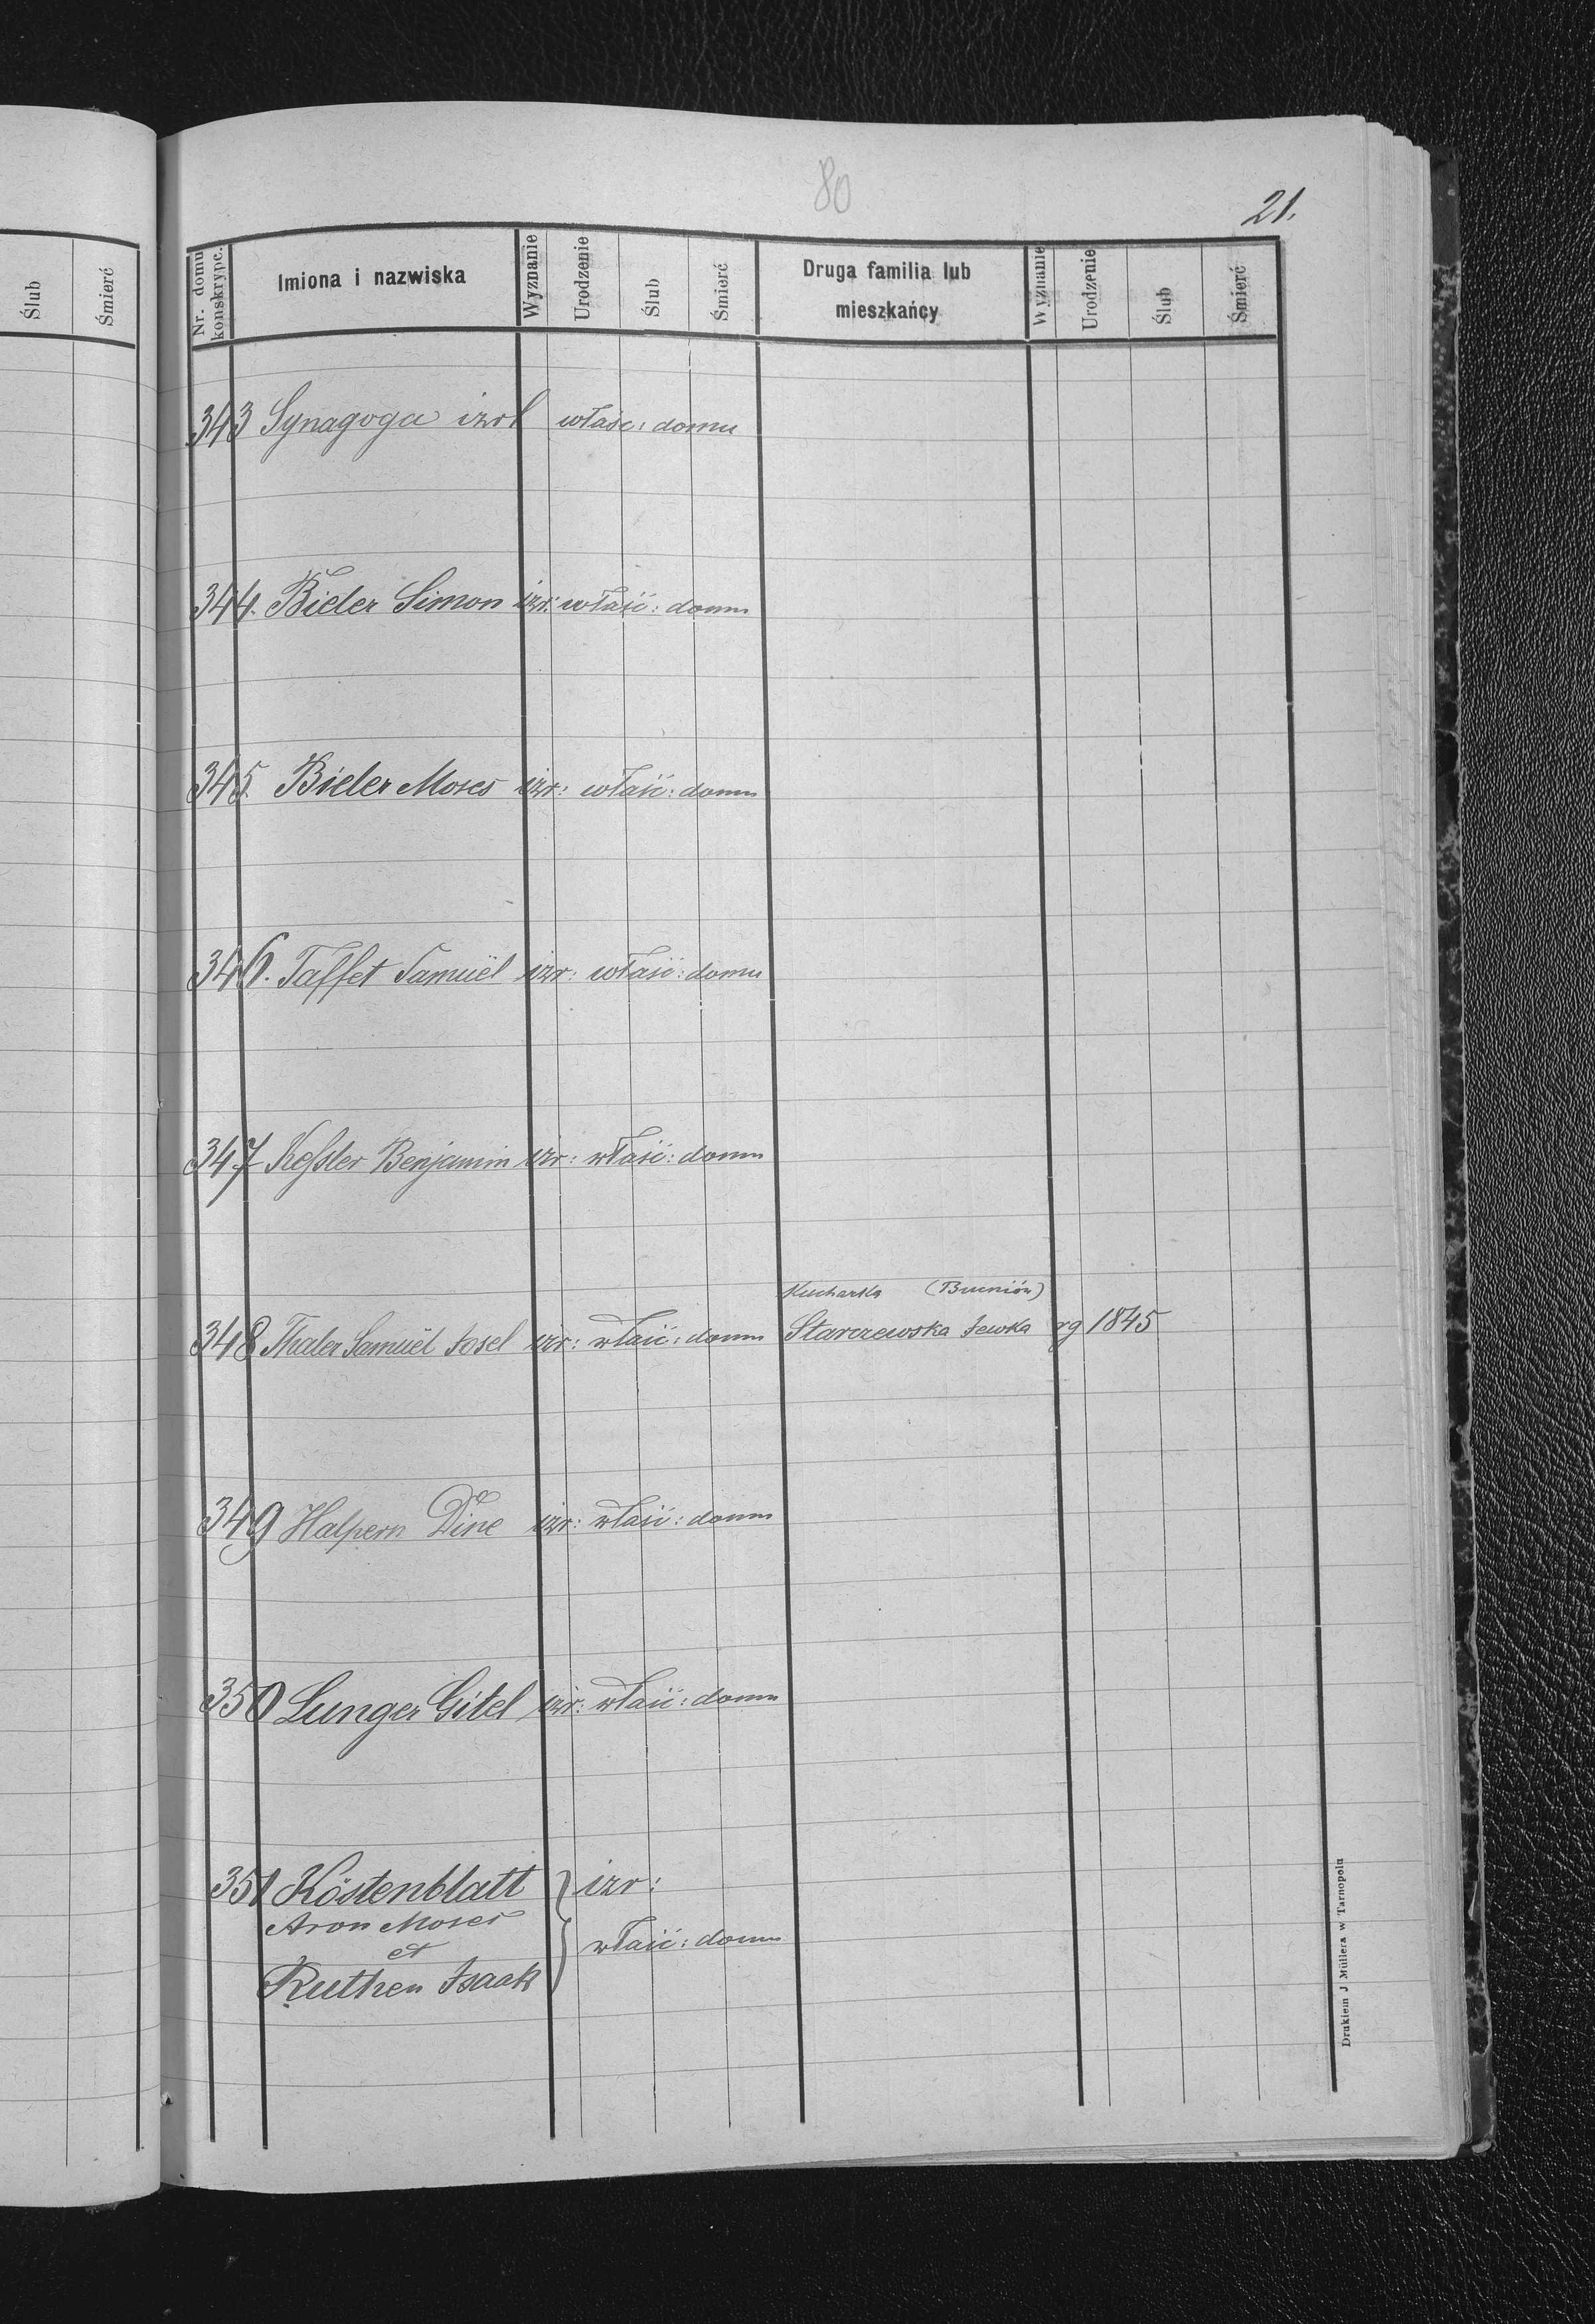 80
21.
Ślub
Śmierć
Nr. domu konskrypc.
Imiona i nazwiska
Wyznanie
Urodzenie
Ślub
Śmierć
Druga familia lub mieszkańcy
Wyznanie
Urodzenie
Ślub
Śmierć
343 Synagoga izrl właśc: domu
344. Bieler Simon izr: właść: domu
345. Bieler Moses izr: właść: domu
346. Taffet Samuel izr: właść: domu
347 Keſsler Benjamin izr: właść: domu
Kucharka
348 Thaler Samuel Josel izr: właść: domu Starczewska Jewka rg 1845
349 Halpern Dine izr: właść: domu
350 Lunger Gitel izr: właść: domu
351 Köstenblatt izr:
Aron Moses
et właść: domu
Ruthen Isaak
Drukiem J Müllera w Tarnopolu